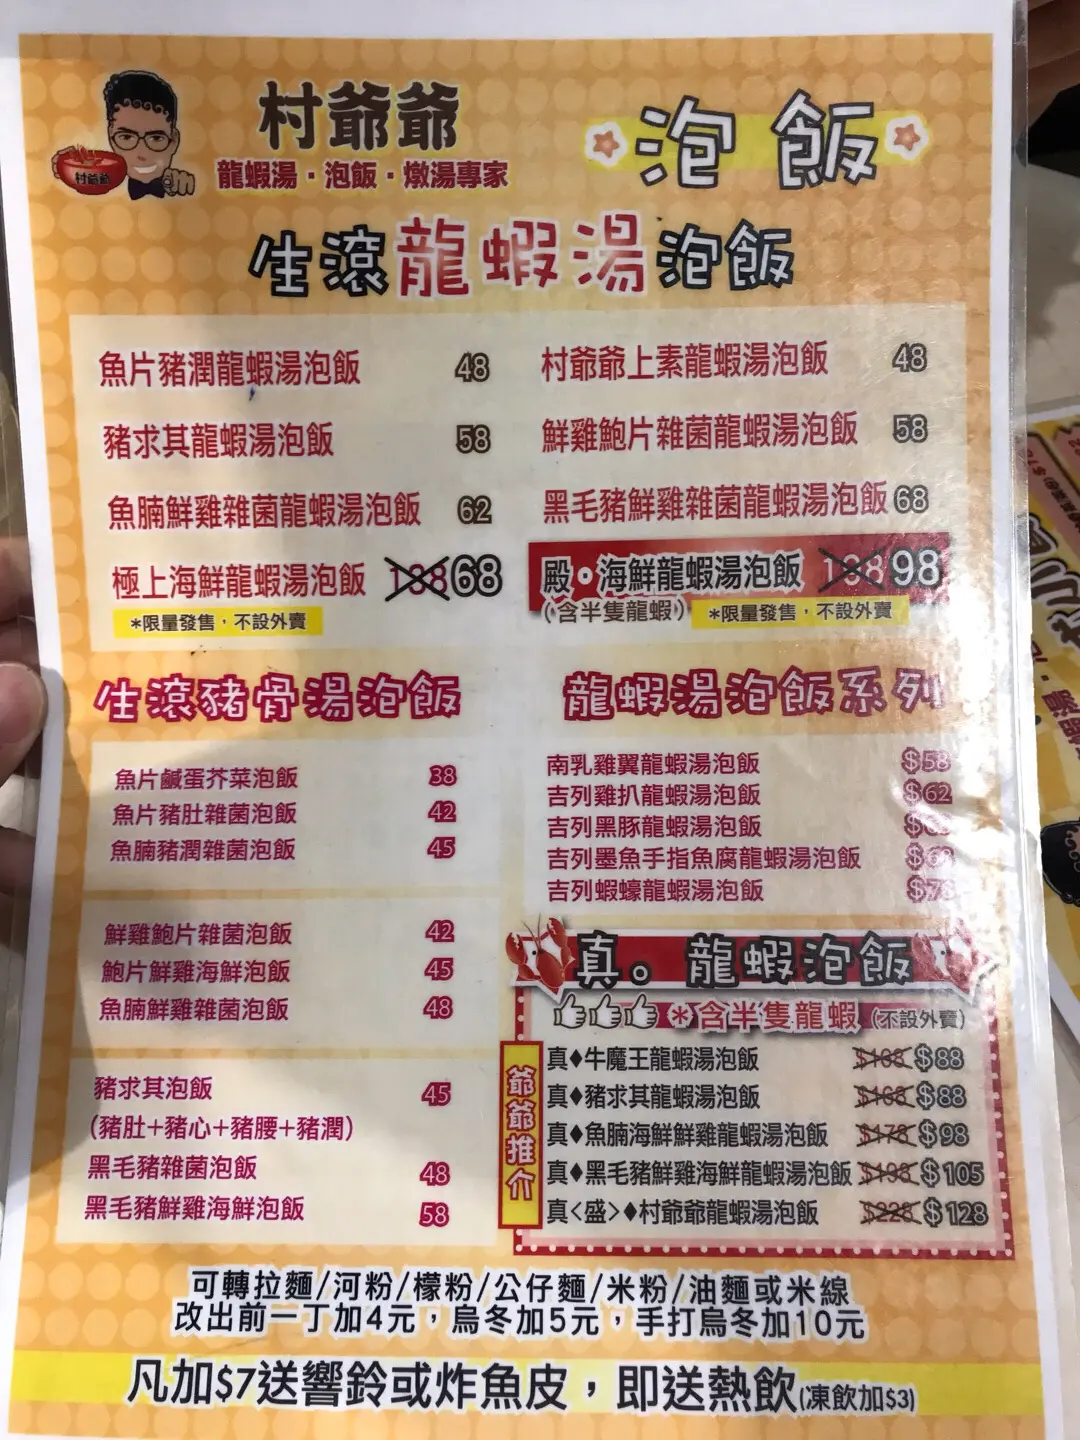 村爺爺
龍蝦湯·泡飯·燉湯專家
泡飯
生滾龍蝦湯泡飯
魚片豬潤龍蝦湯泡飯 48
豬求其龍蝦湯泡飯 58
魚腩鮮雞雜菌龍蝦湯泡飯 62
極上海鮮龍蝦湯泡飯 68
*限量發售，不設外賣
村爺爺上素龍蝦湯泡飯 48
鮮雞鮑片雜菌龍蝦湯泡飯 58
黑毛豬鮮雞雜菌龍蝦湯泡飯 68
殿·海鮮龍蝦湯泡飯 98
(含半隻龍蝦) *限量發售，不設外賣
生滾豬骨湯泡飯
魚片鹹蛋芥菜泡飯 38
魚片豬肚雜菌泡飯 42
魚腩豬潤雜菌泡飯 45
鮮雞鮑片雜菌泡飯 42
鮑片鮮雞海鮮泡飯 45
魚腩鮮雞雜菌泡飯 48
豬求其泡飯 45
(豬肚+豬心+豬腰+豬潤)
黑毛豬雜菌泡飯 48
黑毛豬鮮雞海鮮泡飯 58
龍蝦湯泡飯系列
南乳雞翼龍蝦湯泡飯 $58
吉列雞扒龍蝦湯泡飯 $62
吉列黑豚龍蝦湯泡飯
吉列墨魚手指魚腐龍蝦湯泡飯
吉列蝦蠔龍蝦湯泡飯
真。龍蝦泡飯
*含半隻龍蝦 (不設外賣)
爺爺推介
真♦牛魔王龍蝦湯泡飯 $168 $88
真♦豬求其龍蝦湯泡飯 $168 $88
真♦魚腩海鮮鮮雞龍蝦湯泡飯 $178 $98
真♦黑毛豬鮮雞海鮮龍蝦湯泡飯 $198 $105
真<盛>♦村爺爺龍蝦湯泡飯 $228 $128
可轉拉麵/河粉/檬粉/公仔麵/米粉/油麵或米線
改出前一丁加4元，烏冬加5元，手打烏冬加10元
凡加$7送響鈴或炸魚皮，即送熱飲(凍飲加$3)